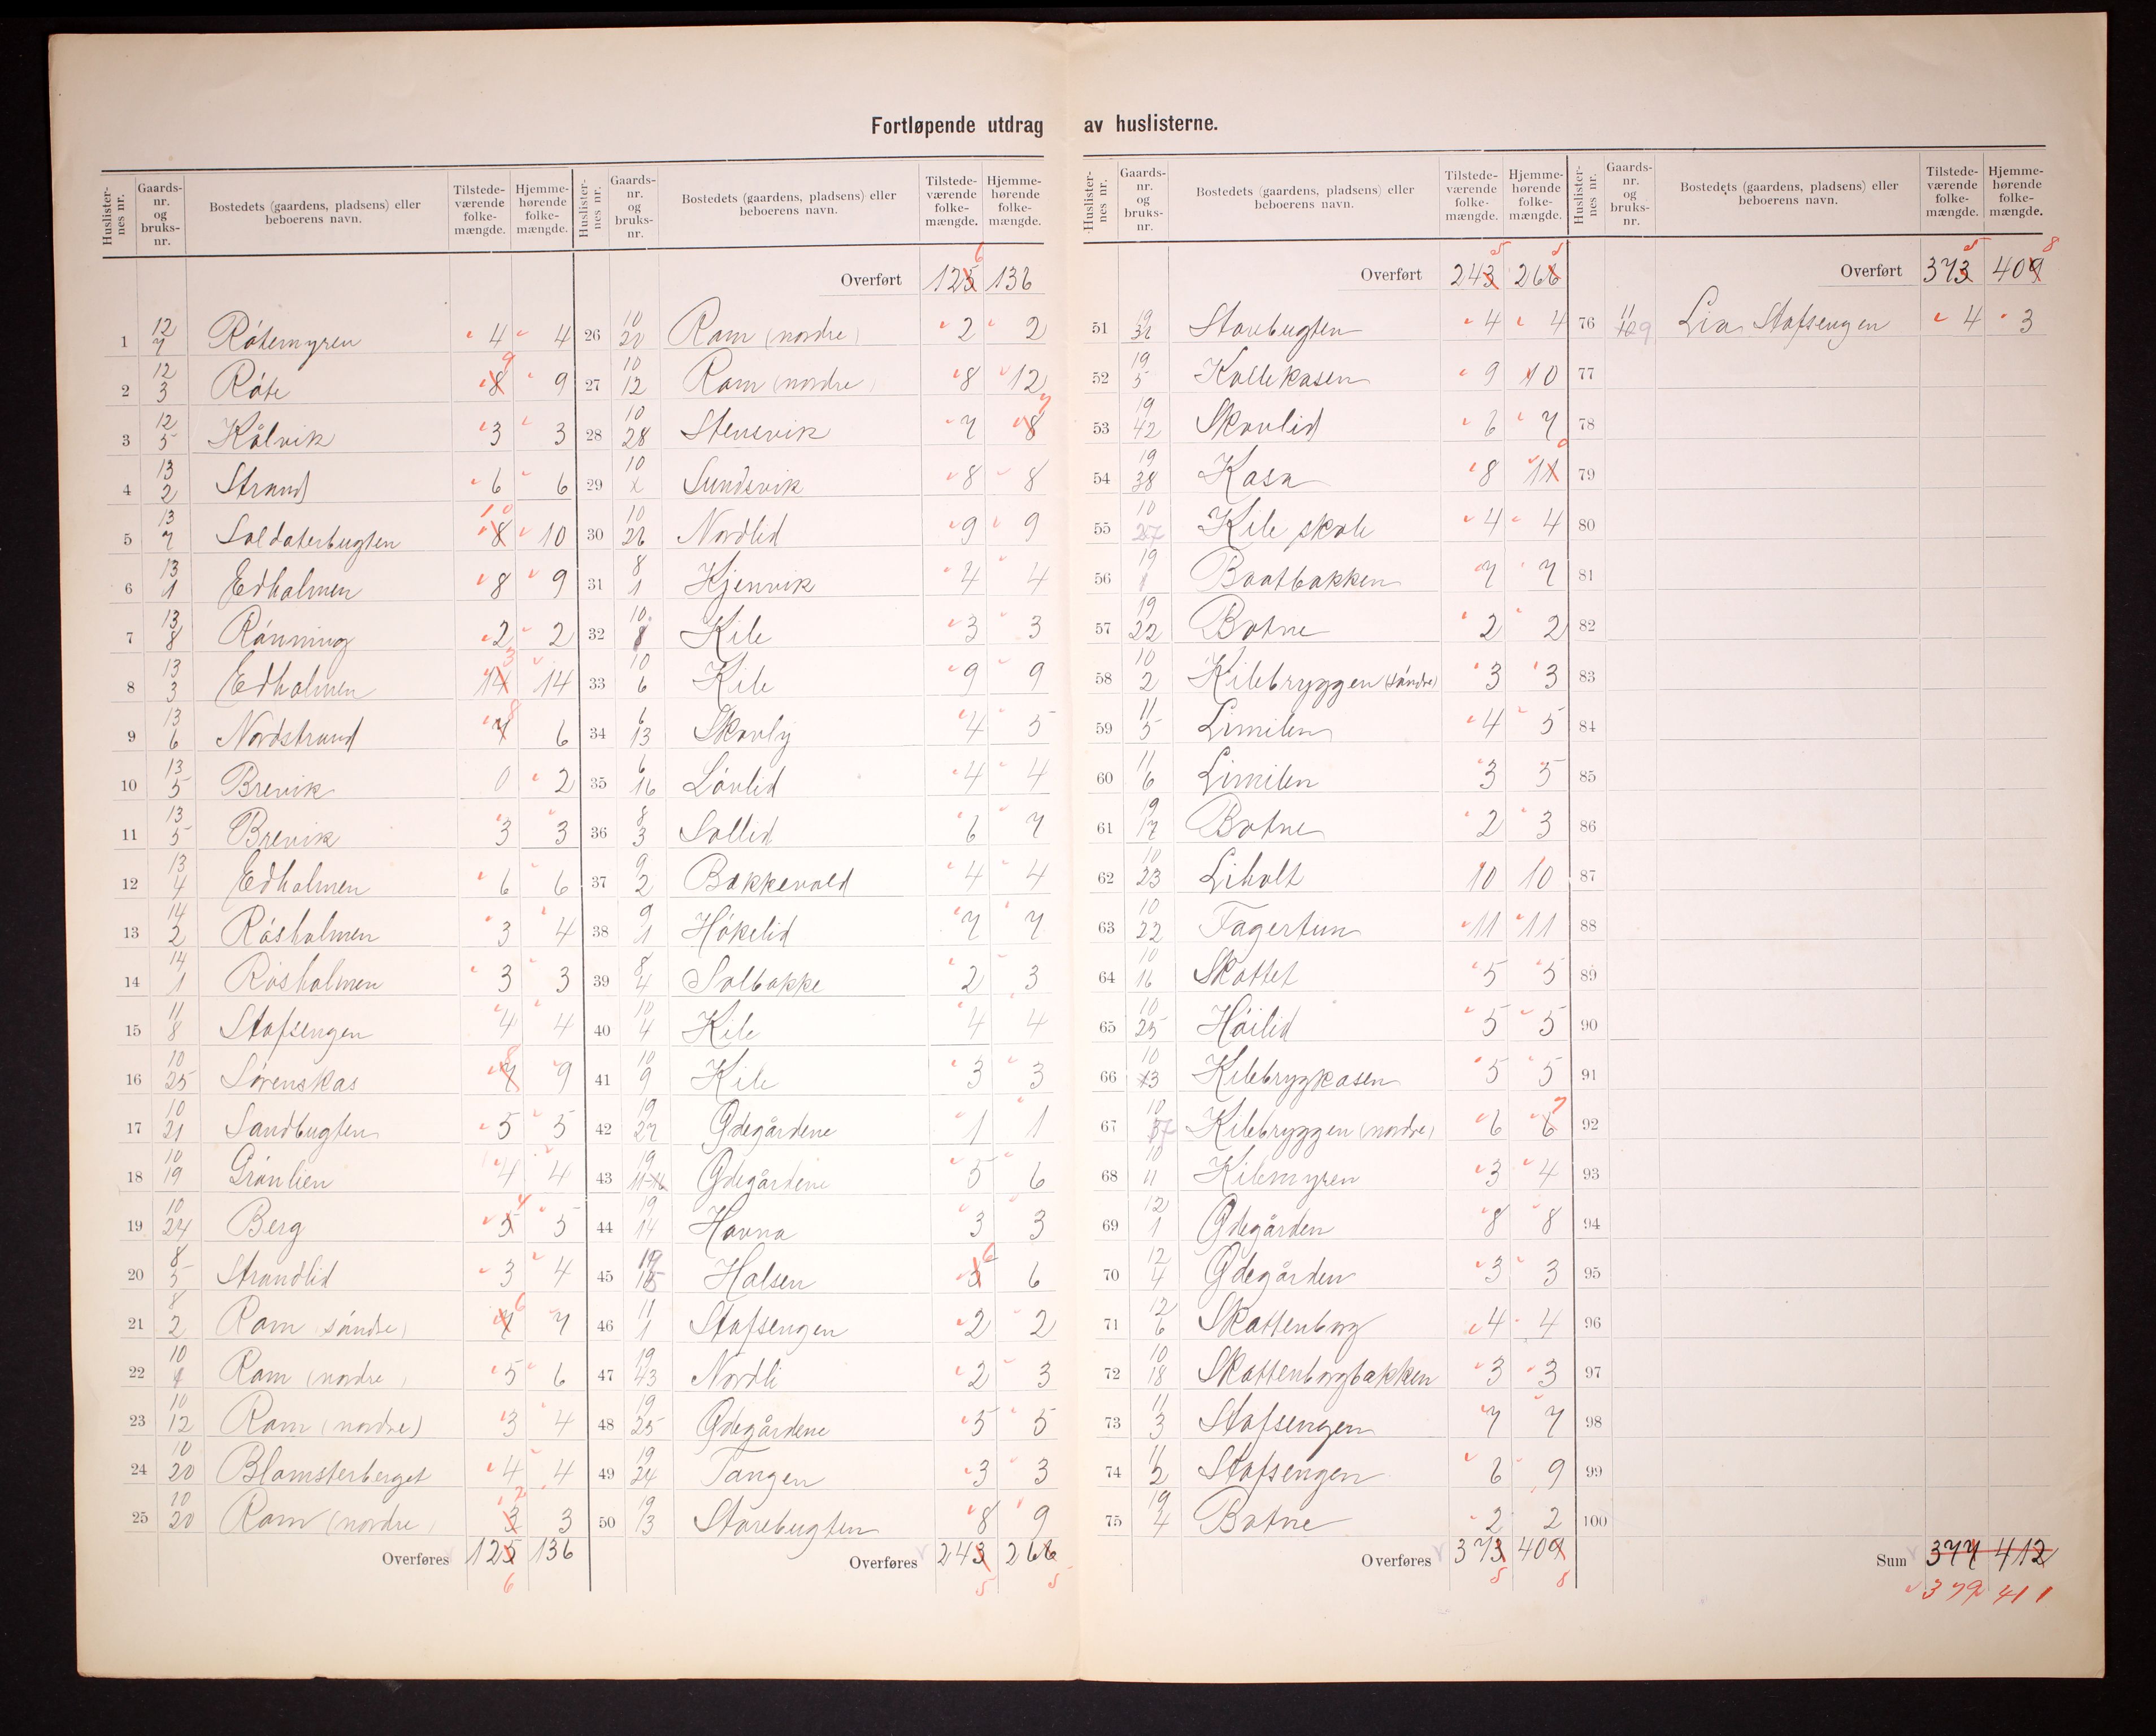 Fortløpende utdrag av huslisterne.
Huslisternes nr. Gaardsnr. og bruksnr. Bostedets (gaardens, pladsens) eller beboerens navn. Tilstedeværende folkemængde. Hjemmehørende folkemængde.
1 12/7 Røtemyren 4 4
2 12/3 Røte 8 9 9
3 12/5 Kålvik 3 3
4 13/2 Strand 6 6
5 13/7 Soldaterbugten 8 10 10
6 13/1 Edholmen 8 9
7 13/8 Rønning 2 2
8 13/3 Edholmen 14 3 14
9 13/6 Nordstrand 7 8 6
10 13/5 Brevik 0 2
11 13/5 Brevik 3 3
12 13/4 Edholmen 6 6
13 14/2 Røsholmen 3 4
14 14/1 Røsholmen 3 3
15 11/8 Stafsengen 4 4
16 10/25 Sørenskas 7 8 9
17 10/21 Sandbugten 5 5
18 10/19 Grønlien 4 4
19 10/24 Berg 5 4 5
20 8/5 Strandlid 3 4
21 8/2 Ram (søndre) 7 6 7
22 10/1 Ram (nordre) 5 6
23 10/12 Ram (nordre) 3 4
24 10/20 Blomsterberget 4 4
25 10/20 Ram (nordre) 3 2 3
Overføres 125 6 136
Huslisternes nr. Gaardsnr. og bruksnr. Bostedets (gaardens, pladsens) eller beboerens navn. Tilstedeværende folkemængde. Hjemmehørende folkemængde.
Overført 125 6 136
26 10/20 Ram (nordre) 2 2
27 10/12 Ram (nordre) 8 12
28 10/28 Stensvik 7 8 7
29 10/x Sundsvik 8 8
30 10/26 Nordlid 9 9
31 8/1 Kjenvik 4 4
32 10/8 Kile 3 3
33 10/6 Kile 9 9
34 6/13 Skovly 4 5
35 6/16 Løvlid 4 4
36 8/3 Sollid 6 7
37 9/2 Bakkevold 4 4
38 9/1 Høkelid 7 7
39 8/4 Solbakke 2 3
40 10/4 Kile 4 4
41 10/9 Kile 3 3
42 19/27 Ødegårdene 1 1
43 19/11-16 Ødegårdene 5 6
44 19/14 Havna 3 3
45 19/15 Halsen 5 6 6
46 11/1 Stafsengen 2 2
47 19/43 Nordli 2 3
48 19/25 Ødegårdene 5 5
49 19/24 Tangen 3 3
50 19/13 Storebugten 8 9
Overføres 243 5 266 5
Huslisternes nr. Gaardsnr. og bruksnr. Bostedets (gaardens, pladsens) eller beboerens navn. Tilstedeværende folkemængde. Hjemmehørende folkemængde.
Overført 243 5 266 5
51 19/32 Storebugten 4 4
52 19/5 Kollekasen 9 10
53 19/42 Skovlid 6 7
54 19/38 Kasa 8 11 0
55 10/27 Kile skole 4 4
56 19/1 Baatbakken 7 7
57 19/22 Botne 2 2
58 10/2 Kilebryggen (søndre) 3 3
59 11/5 Limilen 4 5
60 11/6 Limilen 3 5
61 19/17 Botne 2 3
62 10/23 Liholt 10 10
63 10/22 Fagertun 11 11
64 10/16 Skottet 5 5
65 10/25 Høilid 5 5
66 10/13 Kilebrygkasen 5 5
67 10/57 Kilebryggen (nordre) 6 6 7
68 10/11 Kilemyren 3 4
69 12/1 Ødegården 8 8
70 12/4 Ødegården 3 3
71 12/6 Skottenborg 4 4
72 10/18 Skottenborgbakken 3 3
73 11/3 Stafsengen 7 7
74 11/2 Stafsengen 6 9
75 19/4 Botne 2 2
Overføres 373 5 409 8
Huslisternes nr. Gaardsnr. og bruksnr. Bostedets (gaardens, pladsens) eller beboerens navn. Tilstedeværende folkemængde. Hjemmehørende folkemængde.
Overført 373 5 409 8
76 11/109 Lia Stafsengen 4 3
77
78
79
80
81
82
83
84
85
86
87
88
89
90
91
92
93
94
95
96
97
98
99
100
Sum 377 412
379 411